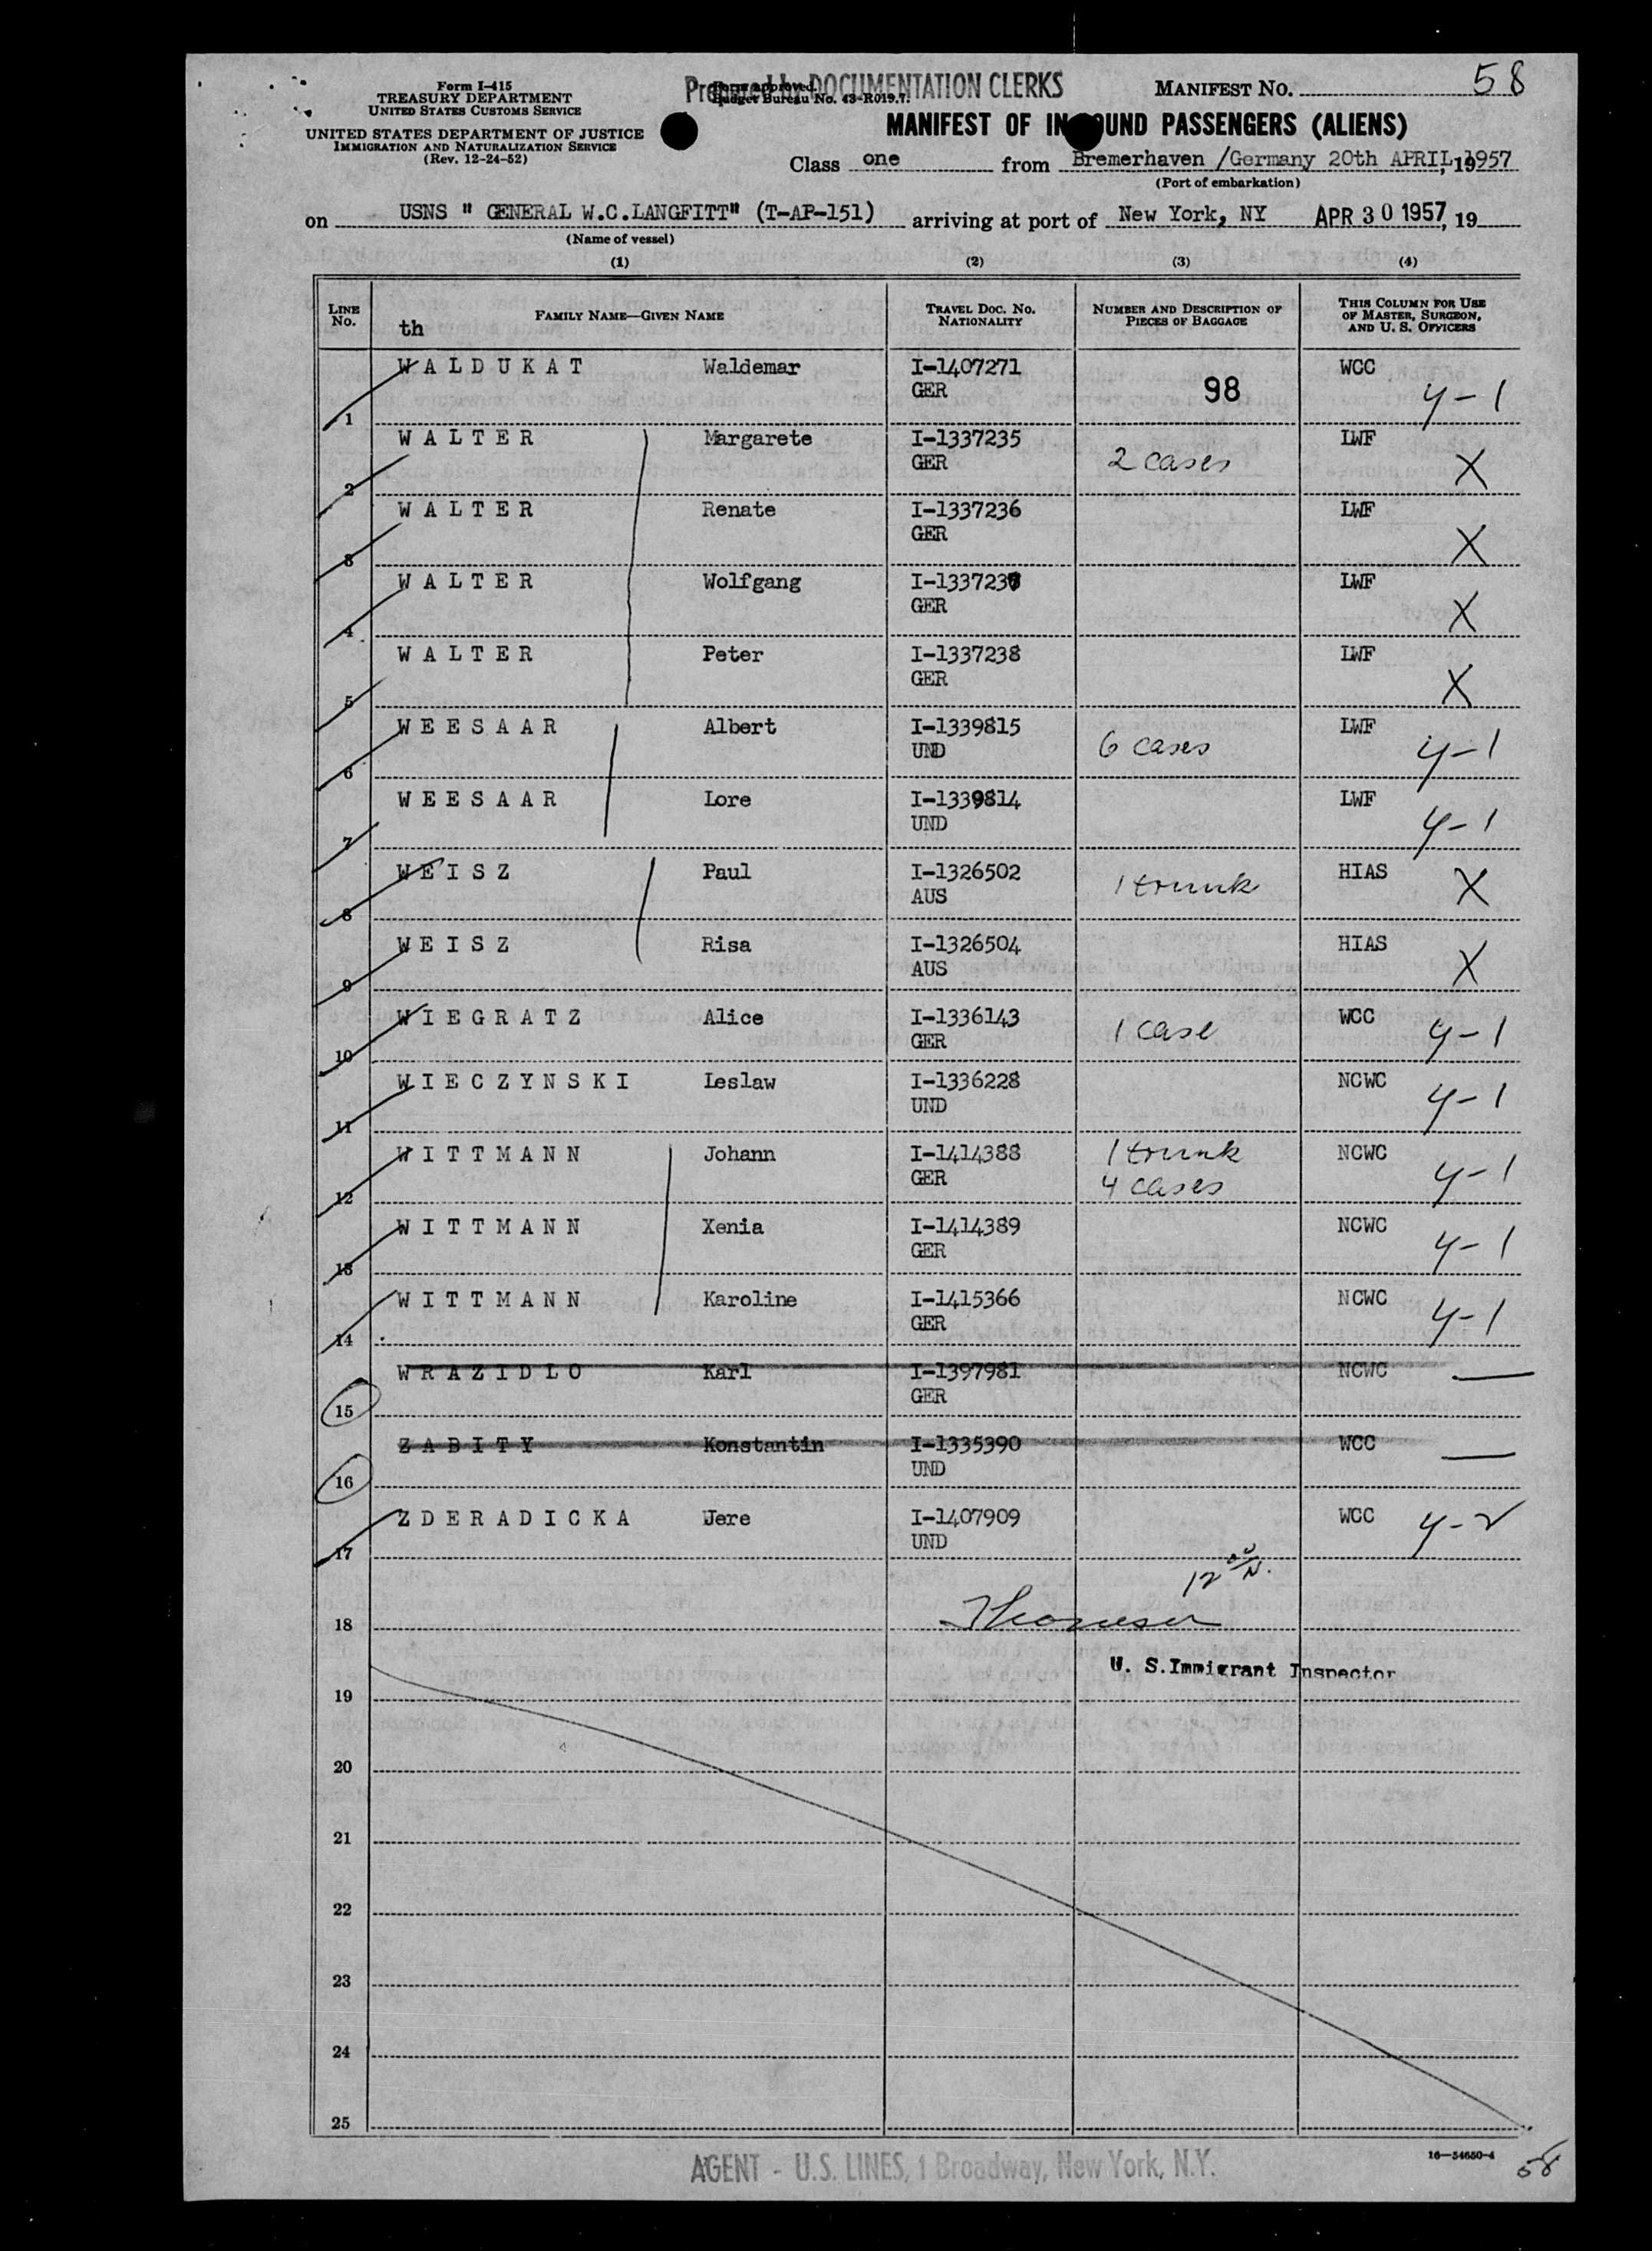 Form I-415
TREASURY DEPARTMENT
UNITED STATES CUSTOMS SERVICE
UNITED STATES DEPARTMENT OF JUSTICE
IMMIGRATION AND NATURALIZATION SERVICE
(Rev. 12-24-52)
Prepared by DOCUMENTATION CLERKS
Form approved.
Budget Bureau No. 43-R019.7.
MANIFEST NO. 58
MANIFEST OF INBOUND PASSENGERS (ALIENS)
Class one from Bremerhaven /Germany 20th APRIL, 1957
(Port of embarkation)
on USNS " GENERAL W.C.LANGFITT" (T-AP-151) arriving at port of New York, NY APR 30 1957, 19
(Name of vessel)
(1) (2) (3) (4)
LINE NO. th FAMILY NAME—GIVEN NAME TRAVEL DOC. NO. NATIONALITY NUMBER AND DESCRIPTION OF PIECES OF BAGGAGE THIS COLUMN FOR USE OF MASTER, SURGEON, AND U. S. OFFICERS
1 WALDUKAT Waldemar I-1407271 GER 98 WCC 4-1
2 WALTER Margarete I-1337235 GER 2 cases LWF X
3 WALTER Renate I-1337236 GER LWF X
4 WALTER Wolfgang I-1337237 GER LWF X
5 WALTER Peter I-1337238 GER LWF X
6 WEESAAR Albert I-1339815 UND 6 cases LWF 4-1
7 WEESAAR Lore I-1339814 UND LWF 4-1
8 WEISZ Paul I-1326502 AUS 1 trunk HIAS X
9 WEISZ Risa I-1326504 AUS HIAS X
10 WIEGRATZ Alice I-1336143 GER 1 case WCC 4-1
11 WIECZYNSKI Leslaw I-1336228 UND NCWC 4-1
12 WITTMANN Johann I-1414388 GER 1 trunk 4 cases NCWC 4-1
13 WITTMANN Xenia I-1414389 GER NCWC 4-1
14 WITTMANN Karoline I-1415366 GER NCWC 4-1
15 WRAZIDLO Karl I-1397981 GER NCWC —
16 ZABITY Konstantin I-1335390 UND WCC —
17 ZDERADICKA Jere I-1407909 UND WCC 4-2
12 00/N.
18
U. S. Immigrant Inspector
19
20
21
22
23
24
25
16—54650-4
AGENT - U.S. LINES, 1 Broadway, New York, N.Y.
58